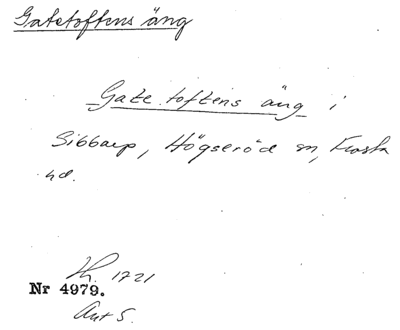 Gatetoftens äng
Gate toftens äng i
Sibbarp, Högseröd sn, Frosta
hd.
Th. 1721
Nr 4979.
Ant 5.